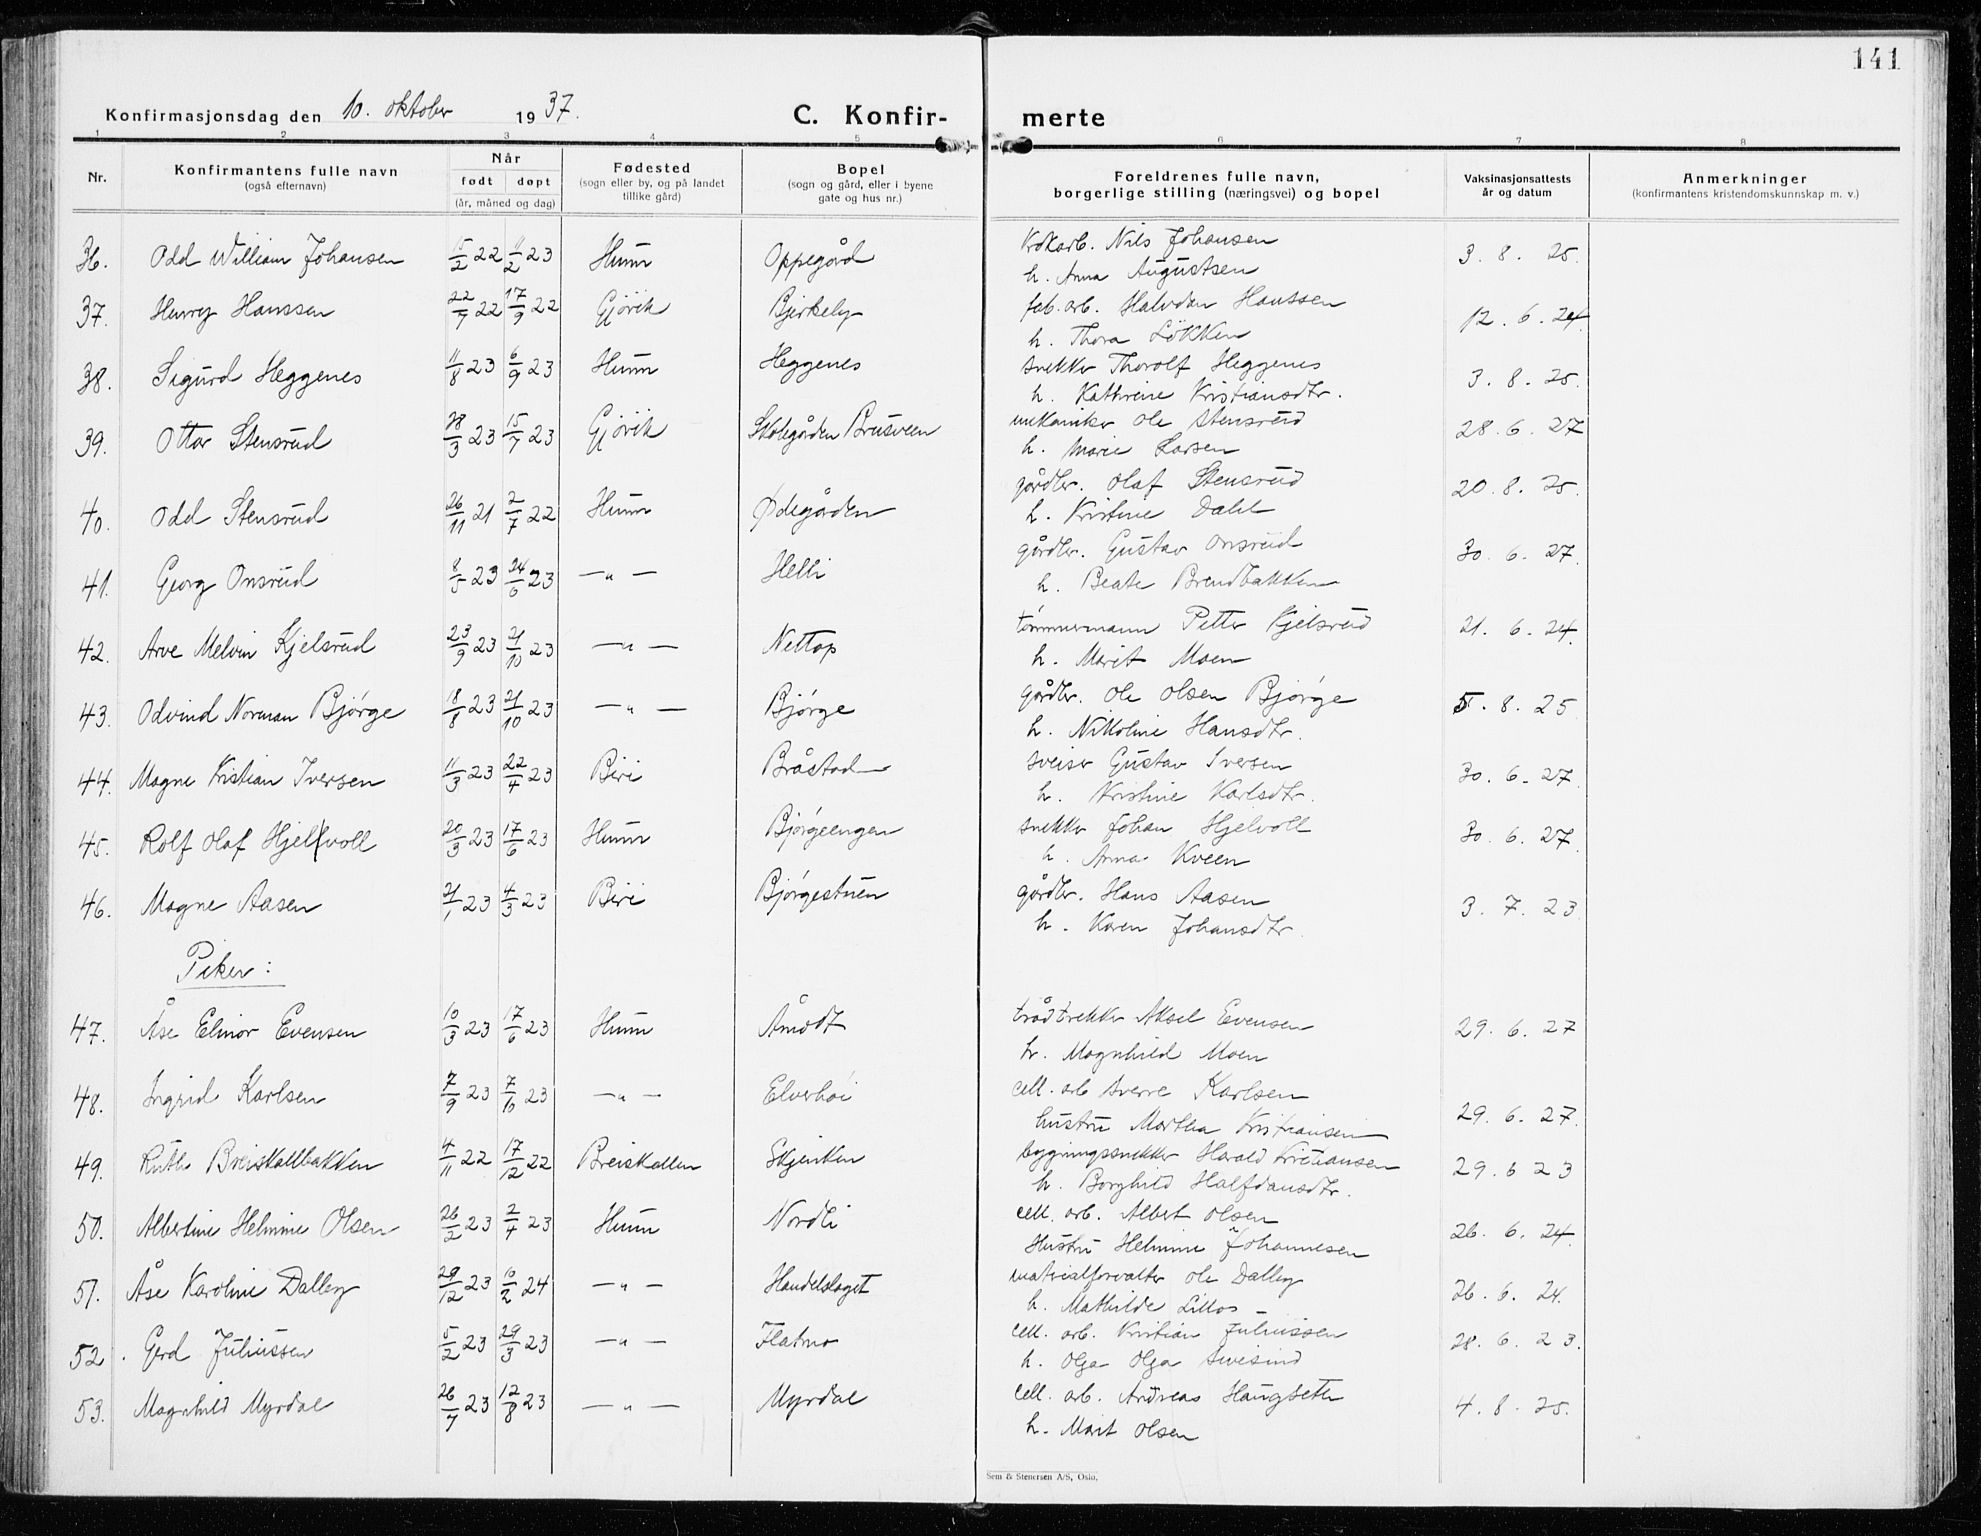 141
Konfirmasjonsdag den 10. oktober 1937.
C. Konfir-
merte
1 2 3 4 5 6 7 8
Nr.
Konfirmantens fulle navn
(også efternavn)
Når
født døpt
(år, måned og dag)
Fødested
(sogn eller by, og på landet
tillike gård)
Bopel
(sogn og gård, eller i byene
gate og hus nr.)
Foreldrenes fulle navn,
borgerlige stilling (næringsvei) og bopel
Vaksinasjonsattests
år og datum
Anmerkninger
(konfirmantens kristendomskunnskap m. v.)
36. Odd William Johansen 15/2 22 11/2 23 Hunn Oppegård Nils Johansen 3. 8. 25.
h. Anna Augustsen
37. Henry Hanssen 22/7 22 17/9 22 Gjövik Bjerkely fab. arb. Halvdan Hanssen 12. 6. 24.
h. Thora Lökken
38. Sigurd Heggenes 11/8 23 6/9 23 Hunn Heggenes snekker Thorolf Heggenes 3. 8. 25.
h. Kathrine Kristiansdtr.
39. Ottar Stensrud 28/3 23 15/7 23 Gjövik Skolegården Brusveen mekaniker Ole Stensrud 28. 6. 27
h. Marie Larsen
40. Odd Stensrud 26/11 21 2/7 22 Hunn Ødegården gårdbr. Olaf Stensrud 20. 8. 25.
h. Kristine Dahl
41. Georg Onsrud 8/5 23 24/6 23 — " — Helli gårdbr. Gustav Onsrud 30. 6. 27.
h. Beate Brendbakken
42. Arve Melvin Kjelsrud 23/9 23 21/10 23 — " — Nettop tömmermann Petter Kjelsrud 21. 6. 24.
h. Marit Moen
43. Odvind Norman Bjørge 18/8 23 21/10 23 — " — Bjørge gårdbr. Ole Olsen Bjørge 5. 8. 25
h. Nikoline Hansdtr.
44. Magne Kristian Iversen 11/3 23 22/4 23 Biri Bråstad sveiser Gustav Iversen 30. 6. 27.
h. Kristine Karlsdtr.
45. Rolf Olaf Hjelvoll 20/3 23 17/6 23 Hunn Bjørgeengen snekker Johan Hjelvoll 30. 6. 27.
h. Anna Kveen
46. Magne Aasen 21/1 23 4/3 23 Biri Bjørgestuen gårdbr. Hans Aasen 3. 7. 23
h. Karen Johansdtr.
Piker:
47. Åse Elinor Evensen 10/3 23 17/6 23 Hunn Åmodt trådtrekker Aksel Evensen 29. 6. 27
h. Magnhild Moen
48. Ingrid Karlsen 7/9 23 7/10 23 — " — Elverhöi cell. arb Sverre Karlsen 29. 6. 27.
hustru Martha Kristiansen
49. Ruth Breiskallbakken 4/11 22 17/12 22 Breiskallen Skjenken bygningssnekker Harald Kristiansen 29. 6 23
h. Borghild Halfdansdtr.
50. Albertine Helmine Olsen 26/2 23 2/4 23 Hunn Nordli cell. arb. Albert Olsen 26. 6. 24.
Hustru Helmine Johannesen
51. Åse Karoline Dalby 29/12 23 10/2 24 — " — Handelslaget materialforvalter Ole Dalby 26. 6. 24.
h. Mathilde Lillos
52. Gerd Juliussen 5/2 23 29/3 23 — " — Flatmo cell. arb. Kristian Juliussen 28. 6. 23.
h. Olga Olga
53. Magnhild Myrdal 26/7 23 12/8 23 — " — Myrdal cell. arb. Andreas Haugseth 4. 8. 25.
h. Marit Olsen
Sem & Stenersen A/S, Oslo.